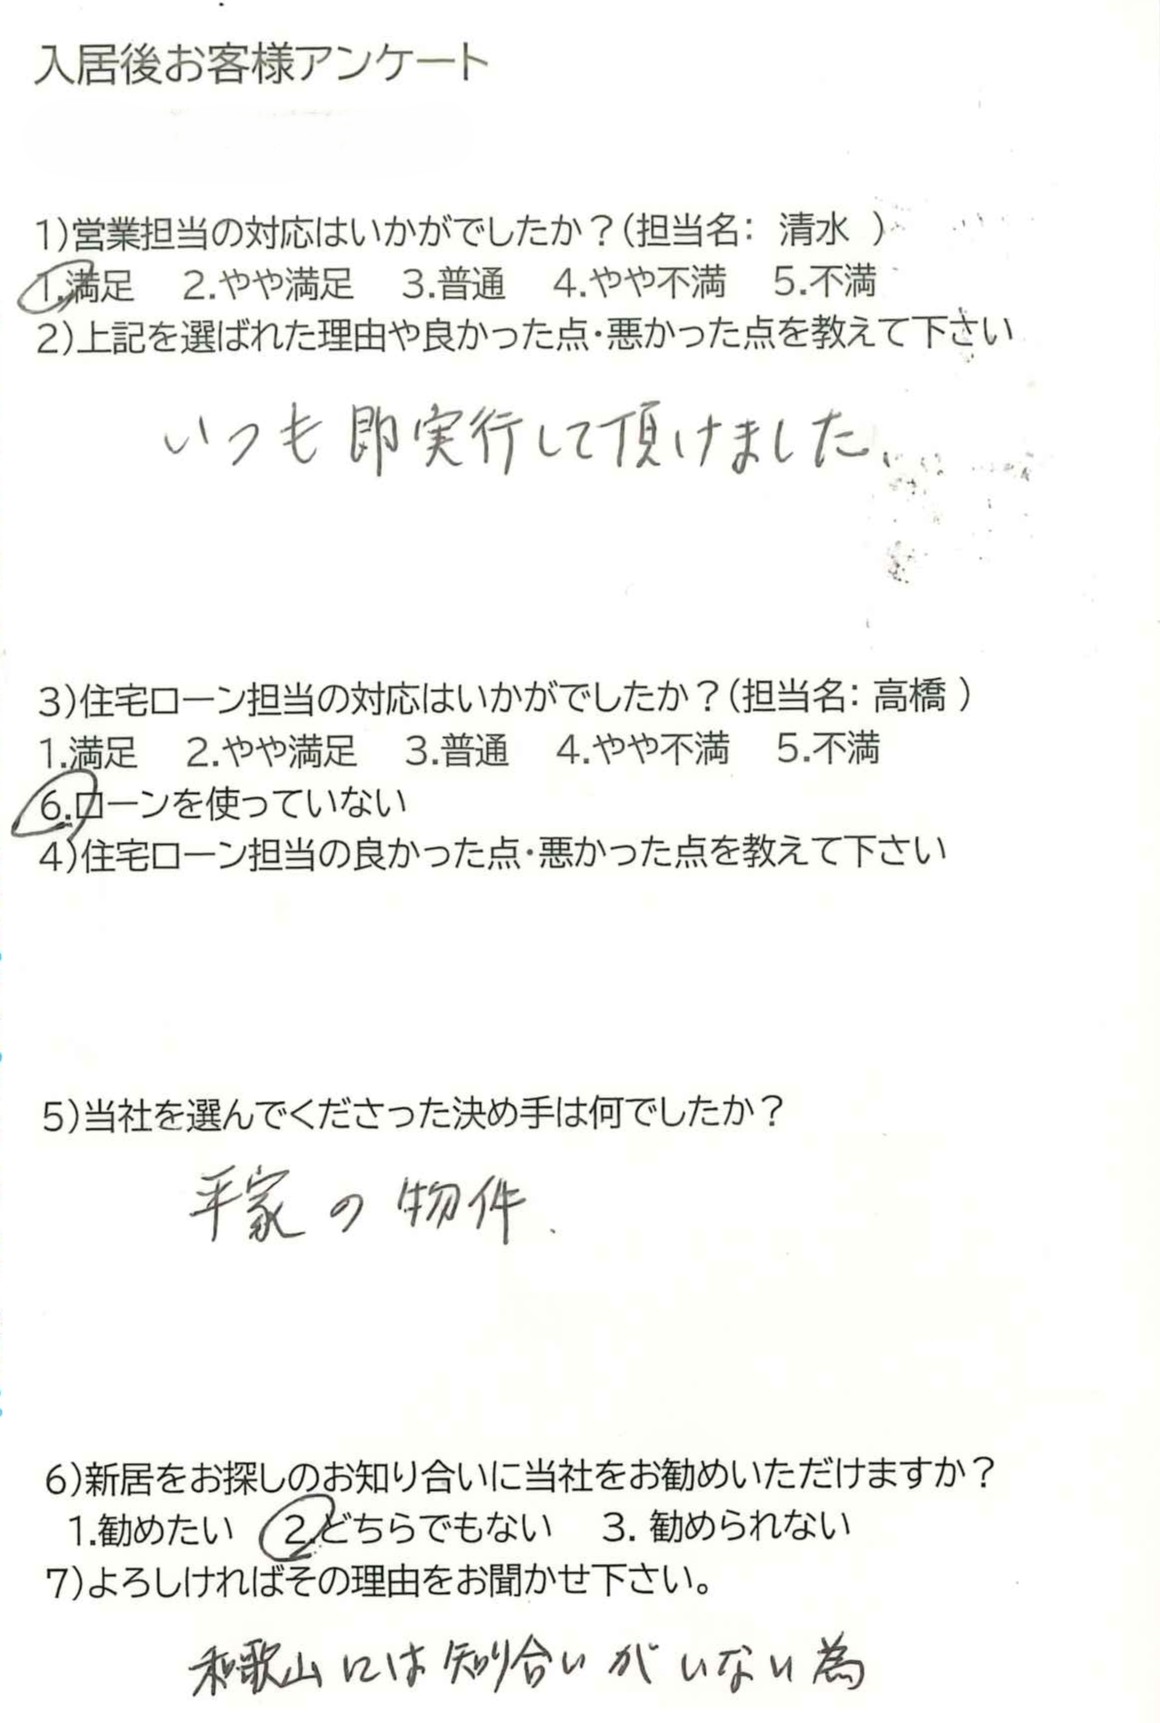 入居後お客様アンケート
1)営業担当の対応はいかがでしたか?(担当名: 清水 )
1.満足 2.やや満足 3.普通 4.やや不満 5.不満
2)上記を選ばれた理由や良かった点・悪かった点を教えて下さい
いつも即実行して頂けました、
3)住宅ローン担当の対応はいかがでしたか?(担当名: 高橋 )
1.満足 2.やや満足 3.普通 4.やや不満 5.不満
6.ローンを使っていない
4)住宅ローン担当の良かった点・悪かった点を教えて下さい
5)当社を選んでくださった決め手は何でしたか?
平家の物件.
6)新居をお探しのお知り合いに当社をお勧めいただけますか?
1.勧めたい 2.どちらでもない 3. 勧められない
7)よろしければその理由をお聞かせ下さい。
和歌山には知り合いがいない為